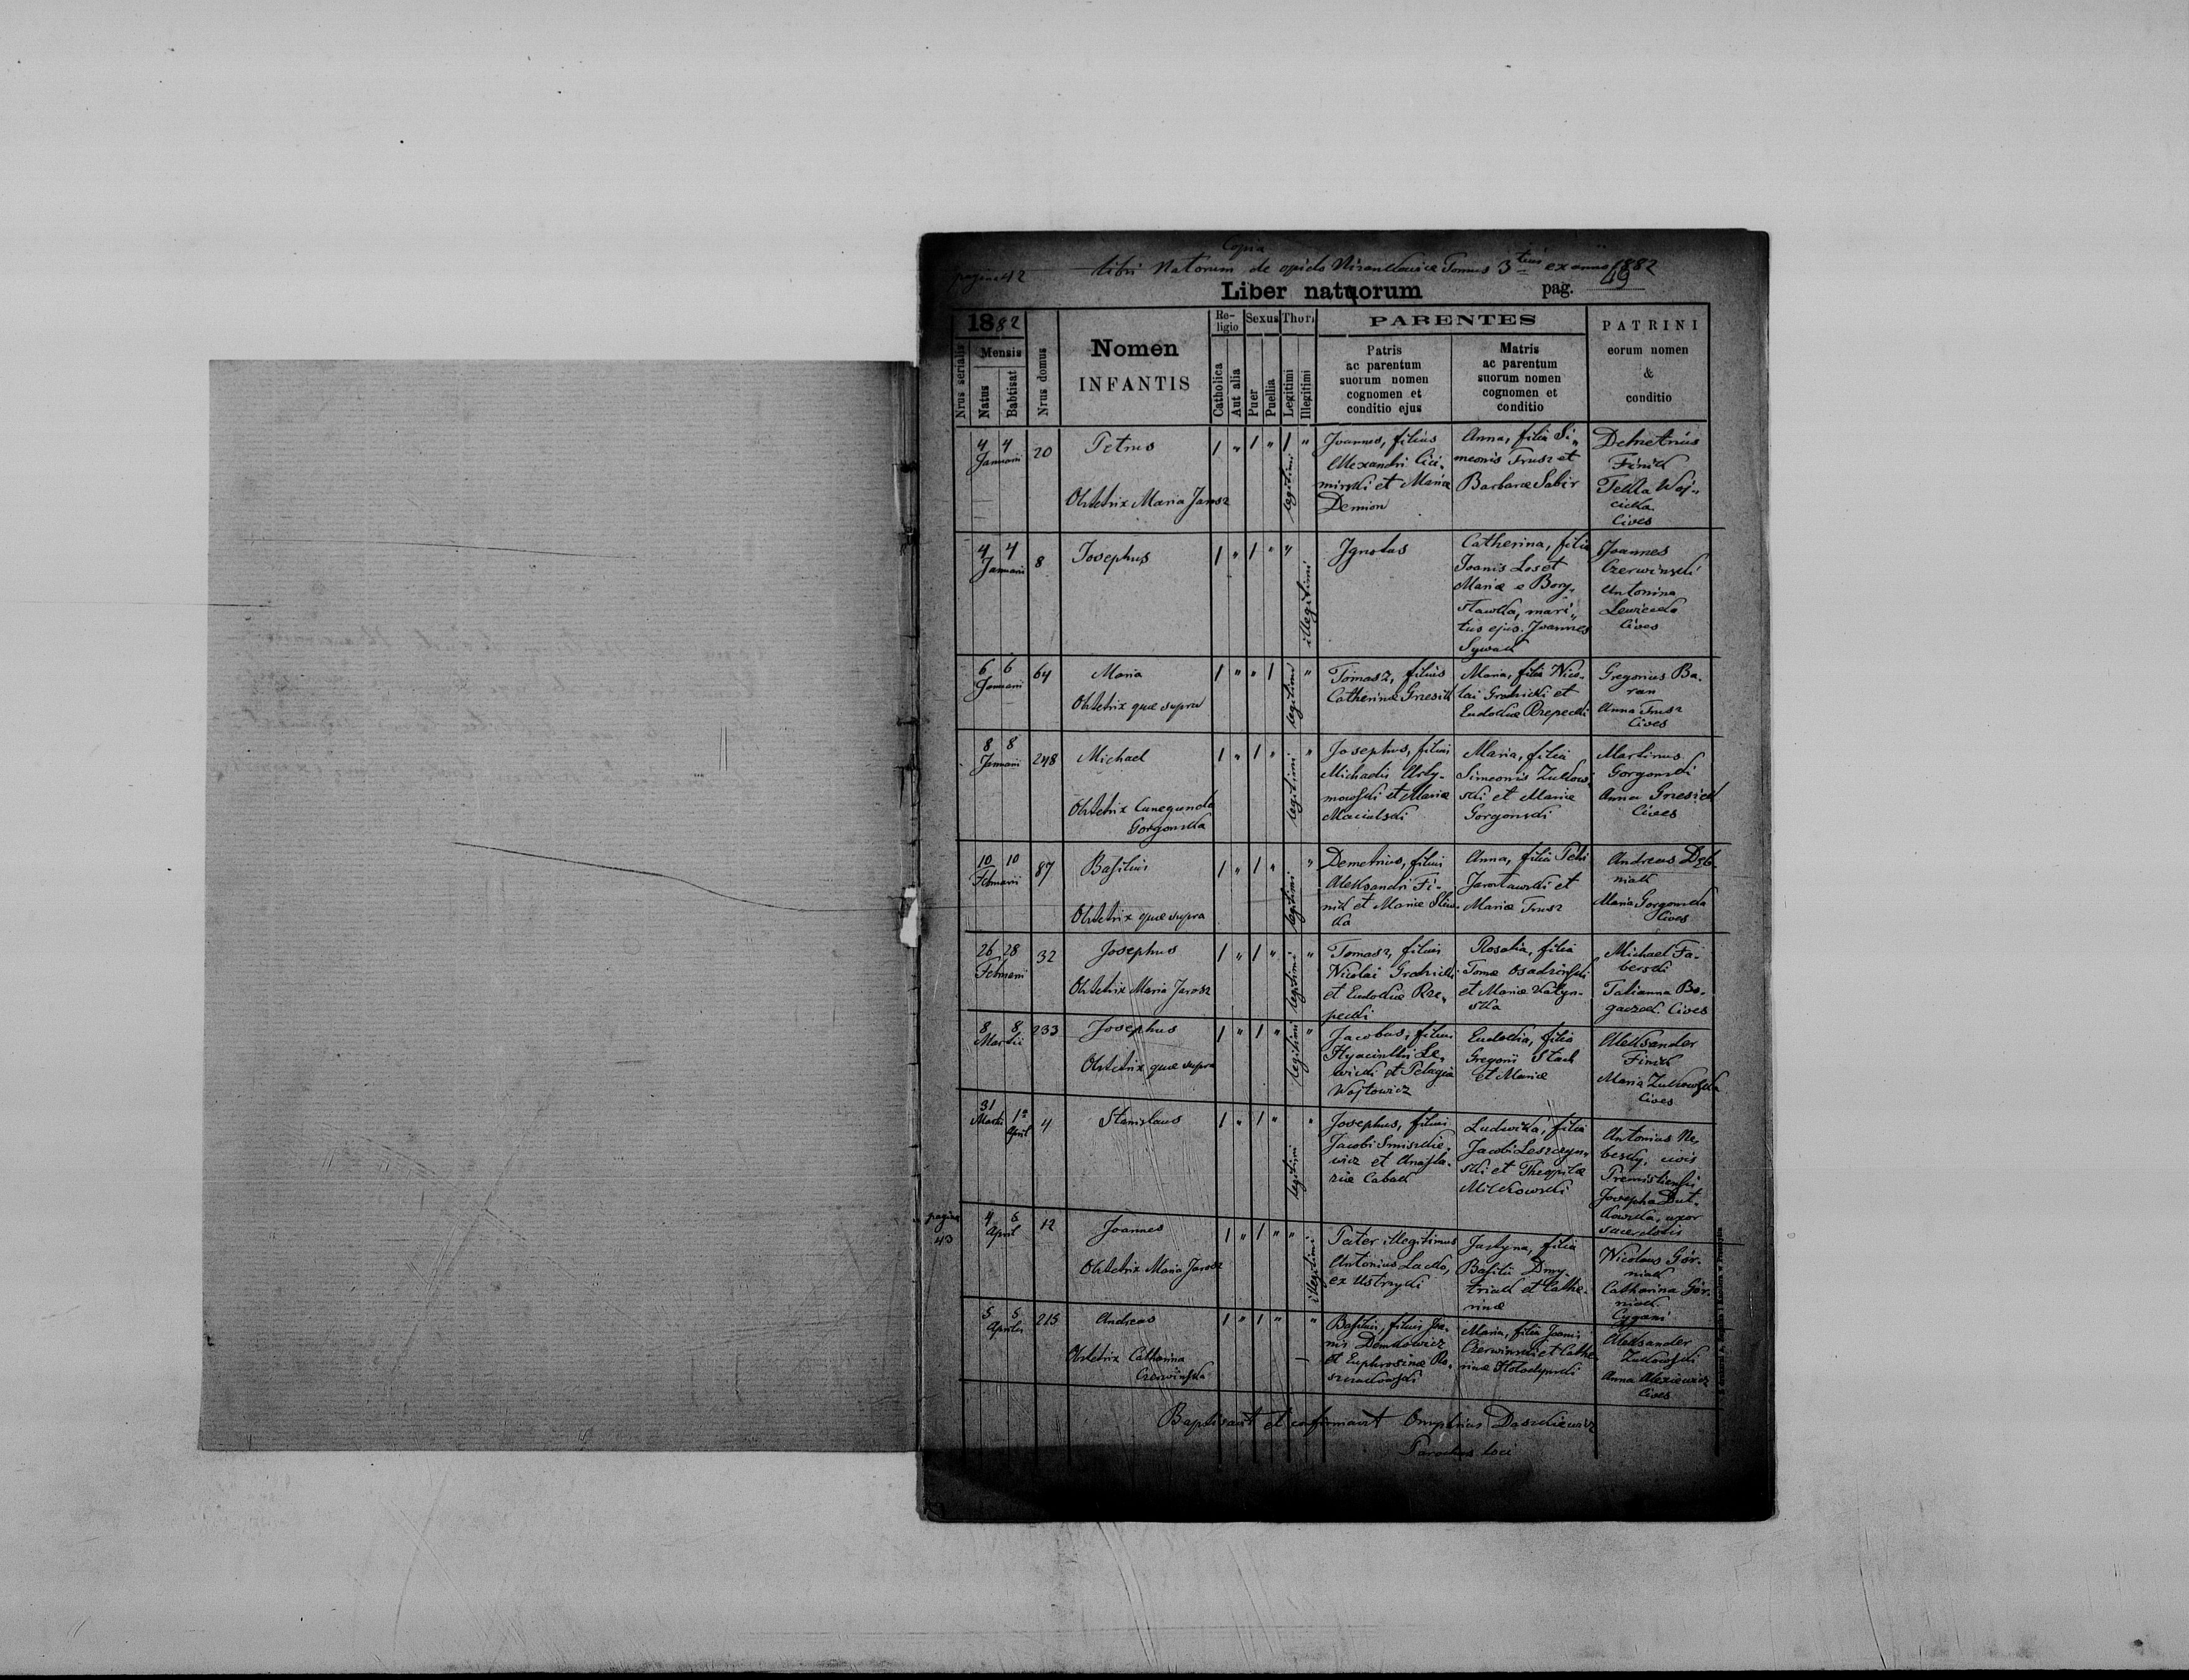 Copia
pagina 42 libri Natorum de opido Nizankowice Tomus 3tius ex anno 1882
Liber natuorum pag. 49
1882
Nrus serialis
Mensis
Natus
Babtisat
Nrus domus
Nomen
INFANTIS
Re-
ligio
Catholica
Aut alia
Sexus
Puer
Puella
Thori
Legitimi
Illegitimi
PARENTES
Patris
ac parentum
suorum nomen
cognomen et
conditio ejus
Matris
ac parentum
suorum nomen
cognomen et
conditio
PATRINI
eorum nomen
&
conditio
4 4
Januarii
20
Petrus
Obstetrix Maria Jarosz
1 " 1 " 1 "
legitimi
Joannes, filius
Alexandri Cici-
mirski et Mariæ
Demion
Anna, filia Si-
meonis Trusz et
Barbaræ Sabir
Demetrius
Finik
Tekla Woj-
cicka
Cives
4 4
Januarii
8
Josephus
1 " 1 " "
illegitimi
Ignotus
Catherina, filia
Joanis Los et
Mariæ e Bory-
sławka, mari-
tus ejus Joannes
Sywak
Joannes
Czerwinski
Antonina
Lewicka
Cives
6 6
Januarii
64
Maria
Obstetrix quæ supra
1 " " 1 "
legitimi
Tomasz, filius
Catherinæ Grzesik
Maria, filia Nico-
lai Grodzicki et
Eudokiæ Rzepecki
Gregorius Ba-
ran
Anna Trusz
Cives
8 8
Januarii
248
Michael
Obstetrix Cunegunda
Gorgonska
1 " 1 " "
legitimi
Josephus, filius
Michaelis Arty-
mowski et Mariæ
Macielski
Maria, filia
Simeonis Zukow-
ski et Mariæ
Gorgonski
Martinus
Gorgonski
Anna Grzesick
Cives
10 10
Februarii
87
Basilius
Obstetrix quæ supra
1 " 1 " "
legitimi
Demetrius, filius
Aleksandri Fi-
nik et Mariæ
Anna, filia
Jarosławski et
Mariæ Trusz
Andreas Dęb-
niak
Maria Gorgonska
Cives
26 28
Februarii
32
Josephus
Obstetrix Maria Jarosz
1 " 1 " "
legitimi
Tomasz, filius
Nicolai Grodzicki
et Eudokiæ Rze-
pecki
Rosalia, filia
Tomæ Osadzinski
et Mariæ Kalyn-
ska
Michael Fa-
berski
Tatianna Bo-
gaczek Cives
8 8
Martii
233
Josephus
Obstetrix quæ supra
1 " 1 " "
legitimi
Jacobus, filius
Hyacinthi Le-
wicki et Pelagia
Wojtowicz
Eudokia, filia
Gregorii Stach
et Mariæ
Aleksander
Finik
Maria Zukowska
Cives
31 1a
Martii April
4
Stanislaus
1 " 1 " "
legitimi
Josephus, filius
Jacobi
et Anasta-
ziæ Cabak
Ludwika, filia
Jacobi Leszczyn-
ski et Theophilæ
Milkowski
Antonius Ne-
besky, civis
Premisliensis
Josepha Dut-
kowska, uxor
sacerdotis
pagina
43
4 5
April
12
Joannes
Obstetrix Maria Jarosz
1 " 1 " "
illegitimi
Pater illegitimus
Antonius Lacko,
ex Ustrzyki
Justyna, filia
Basilii Dmy-
triak et Cathe-
rinæ
Nicolaus Gór-
niak
Catharina Gór-
niak
Cygani
5 5
Aprilis
215
Andreas
Obstetrix Catharina
Czerwinska
1 " 1 " "
Basilius, filius Joa-
nis Demkowicz
et Euphrosinæ Ro-
Maria, filia Joanis
Czerwinski et Cathe-
rinæ Holodynski
Aleksander
Zukowski
Anna Alexiewicz
Cives
Baptisavit et confirmavit Onuphrius Daszkiewicz
Parochus loci